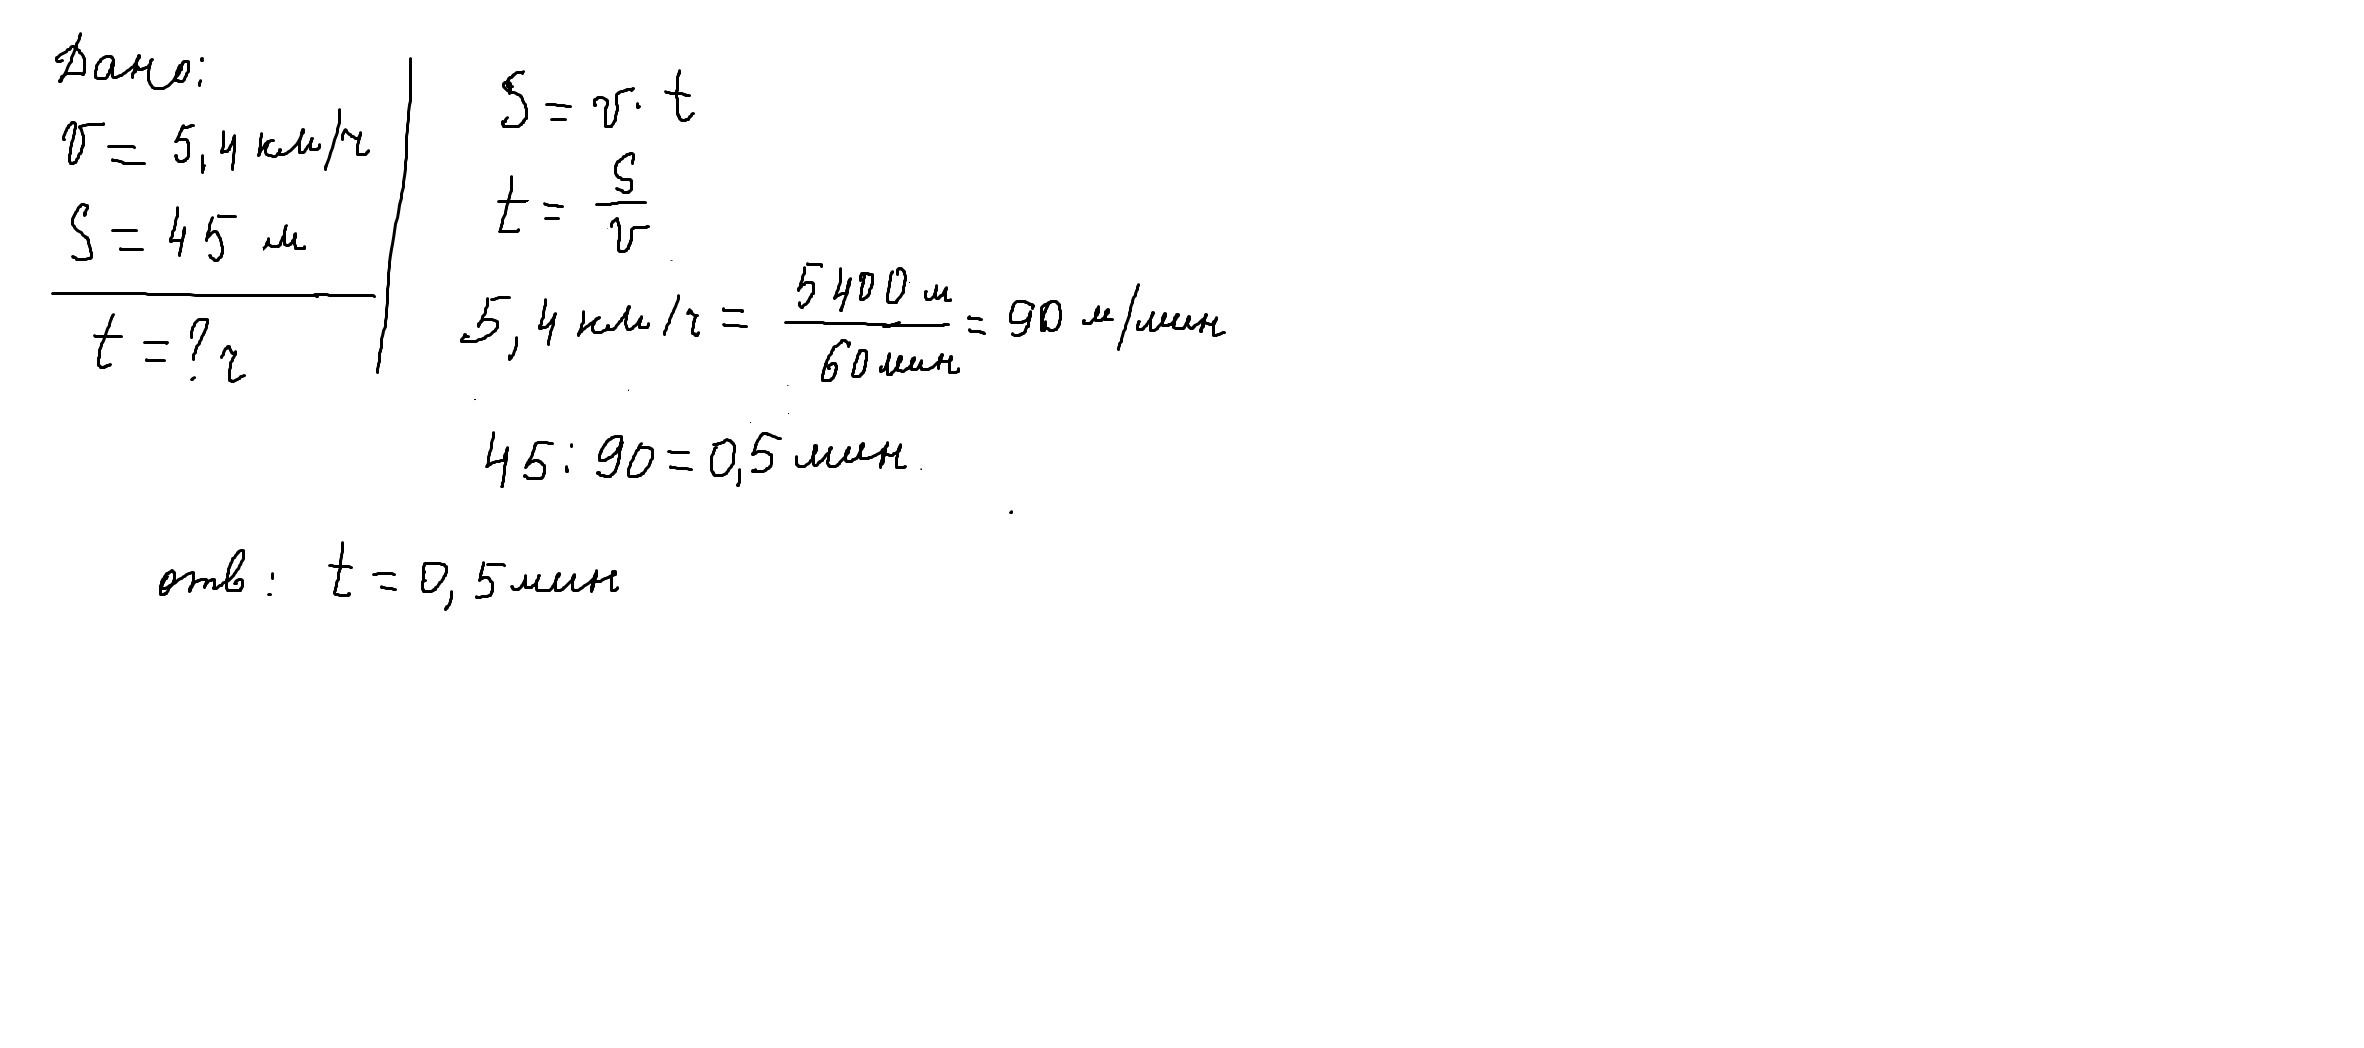 Дано:
v = 5,4 км/ч
S = 45 м
t = ? ч
S = v · t
t = S/v
5,4 км/ч = 5400 м/60 мин = 90 м/мин
45 : 90 = 0,5 мин
отв: t = 0,5 мин